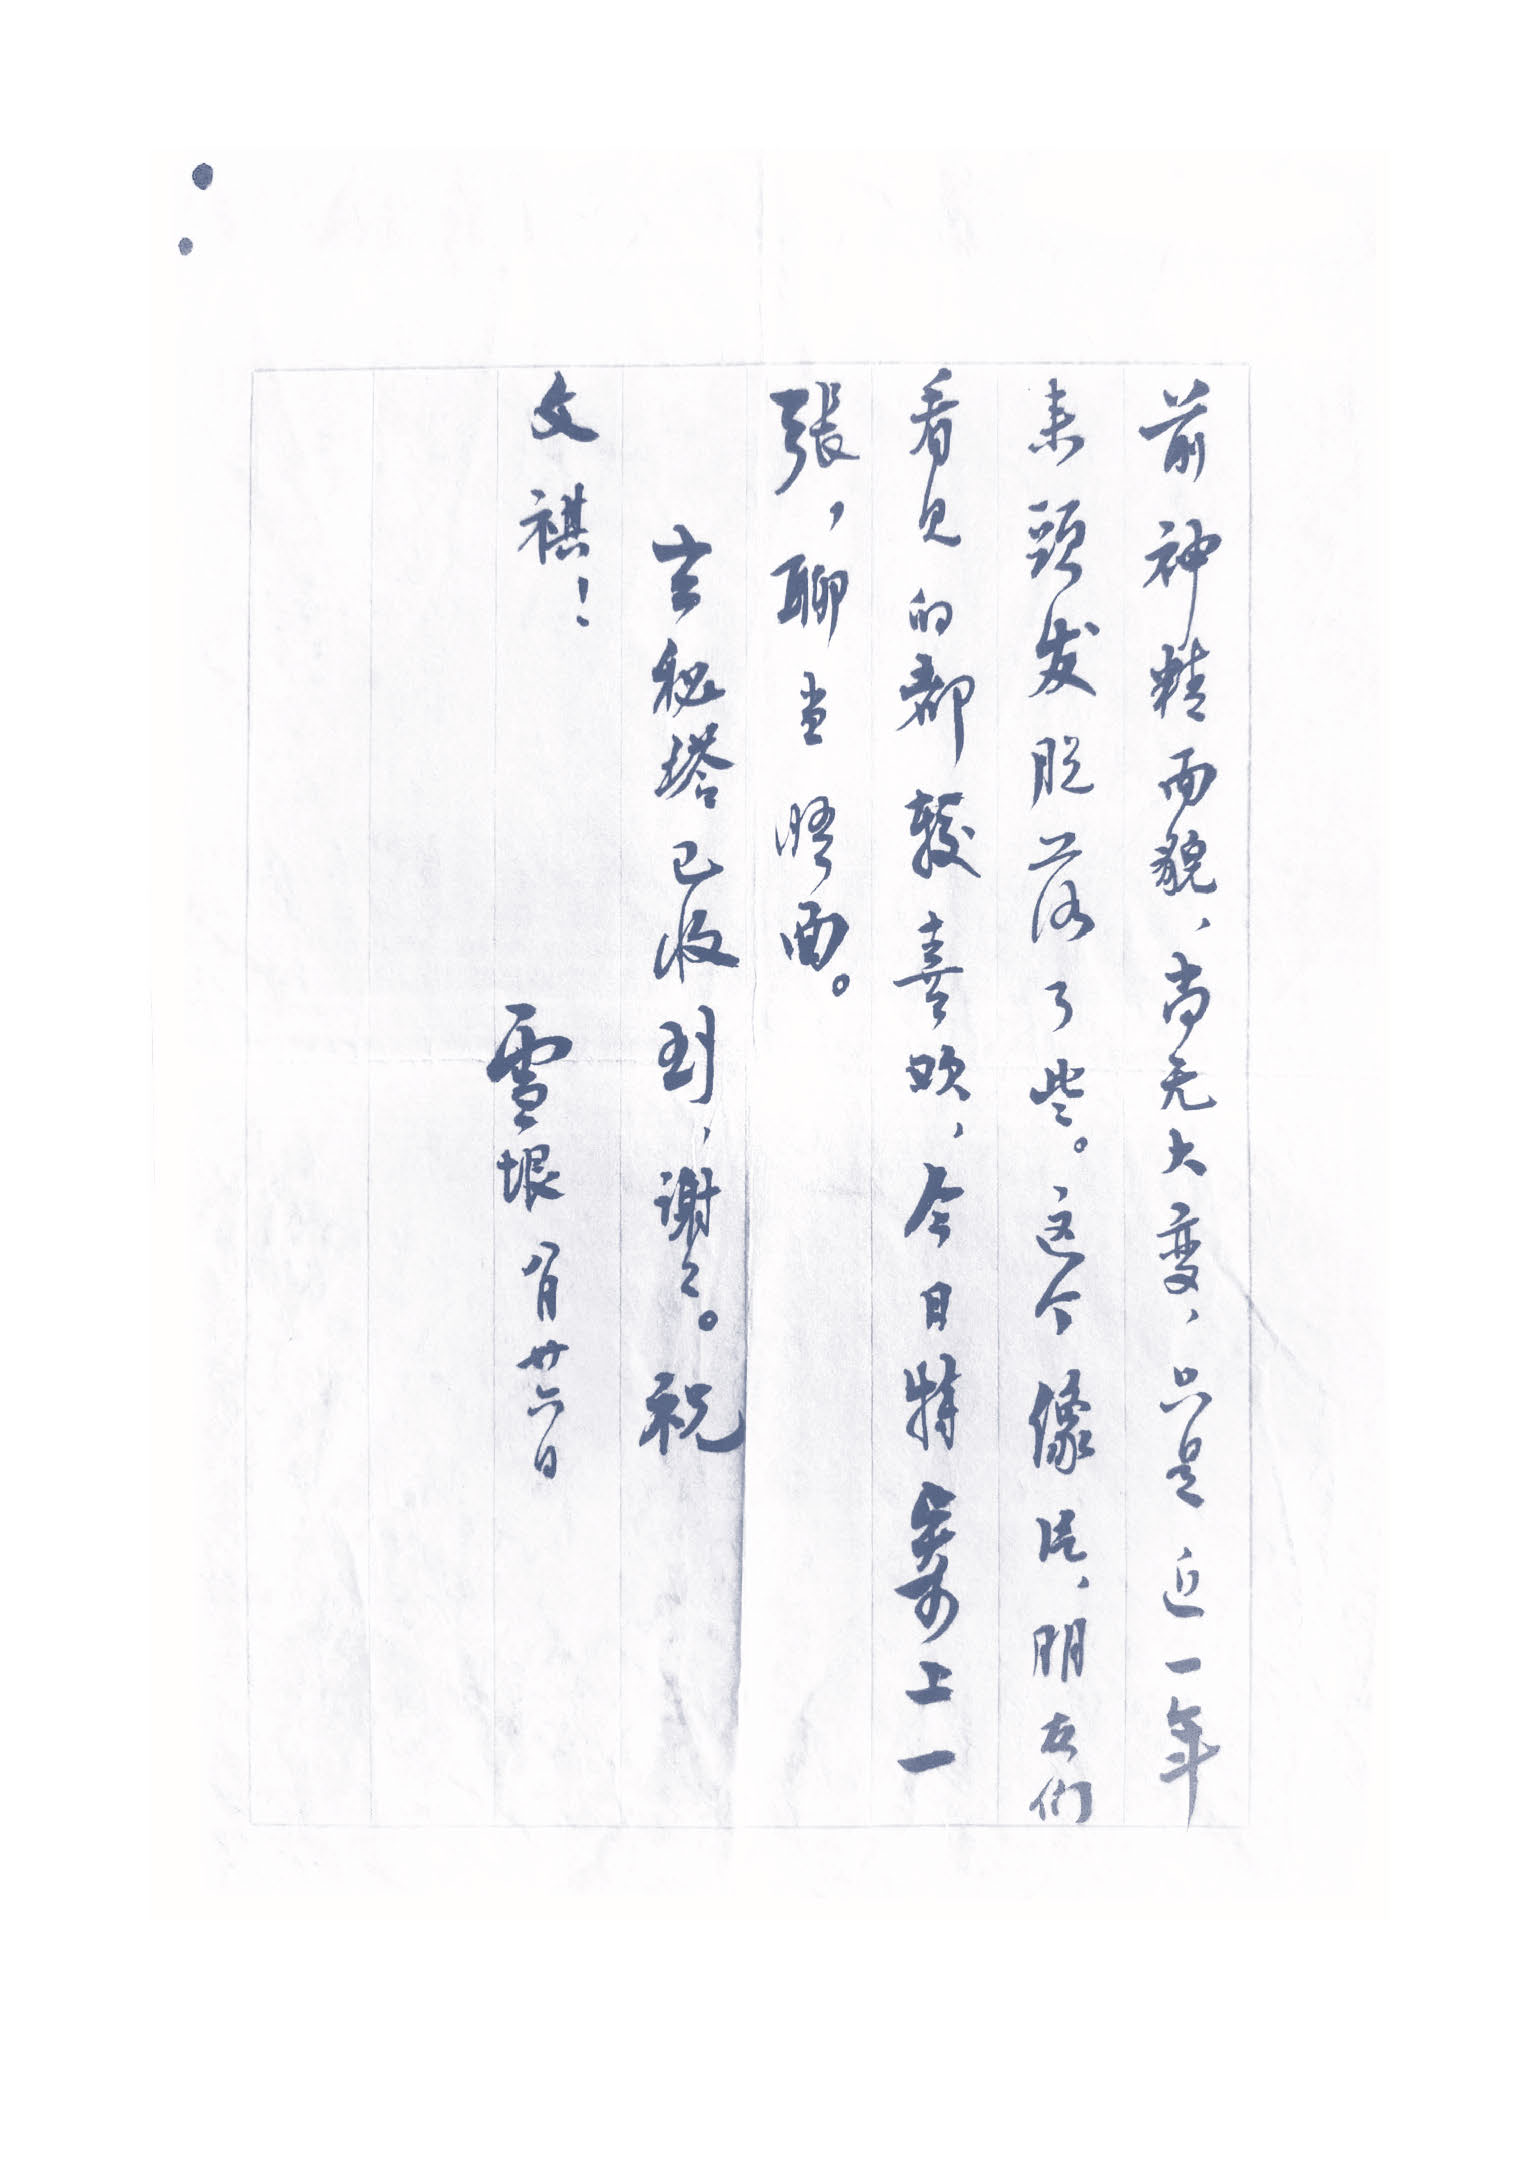 前神精面貌、尚无大变、只是近一年
来頭发脱落了些。这个像片、朋友们
看见的都较喜欢、今日特寄上一
張，聊当晤面。
玄秘塔已收到、谢〻。祝
文祺！
雪垠 八月廿六日